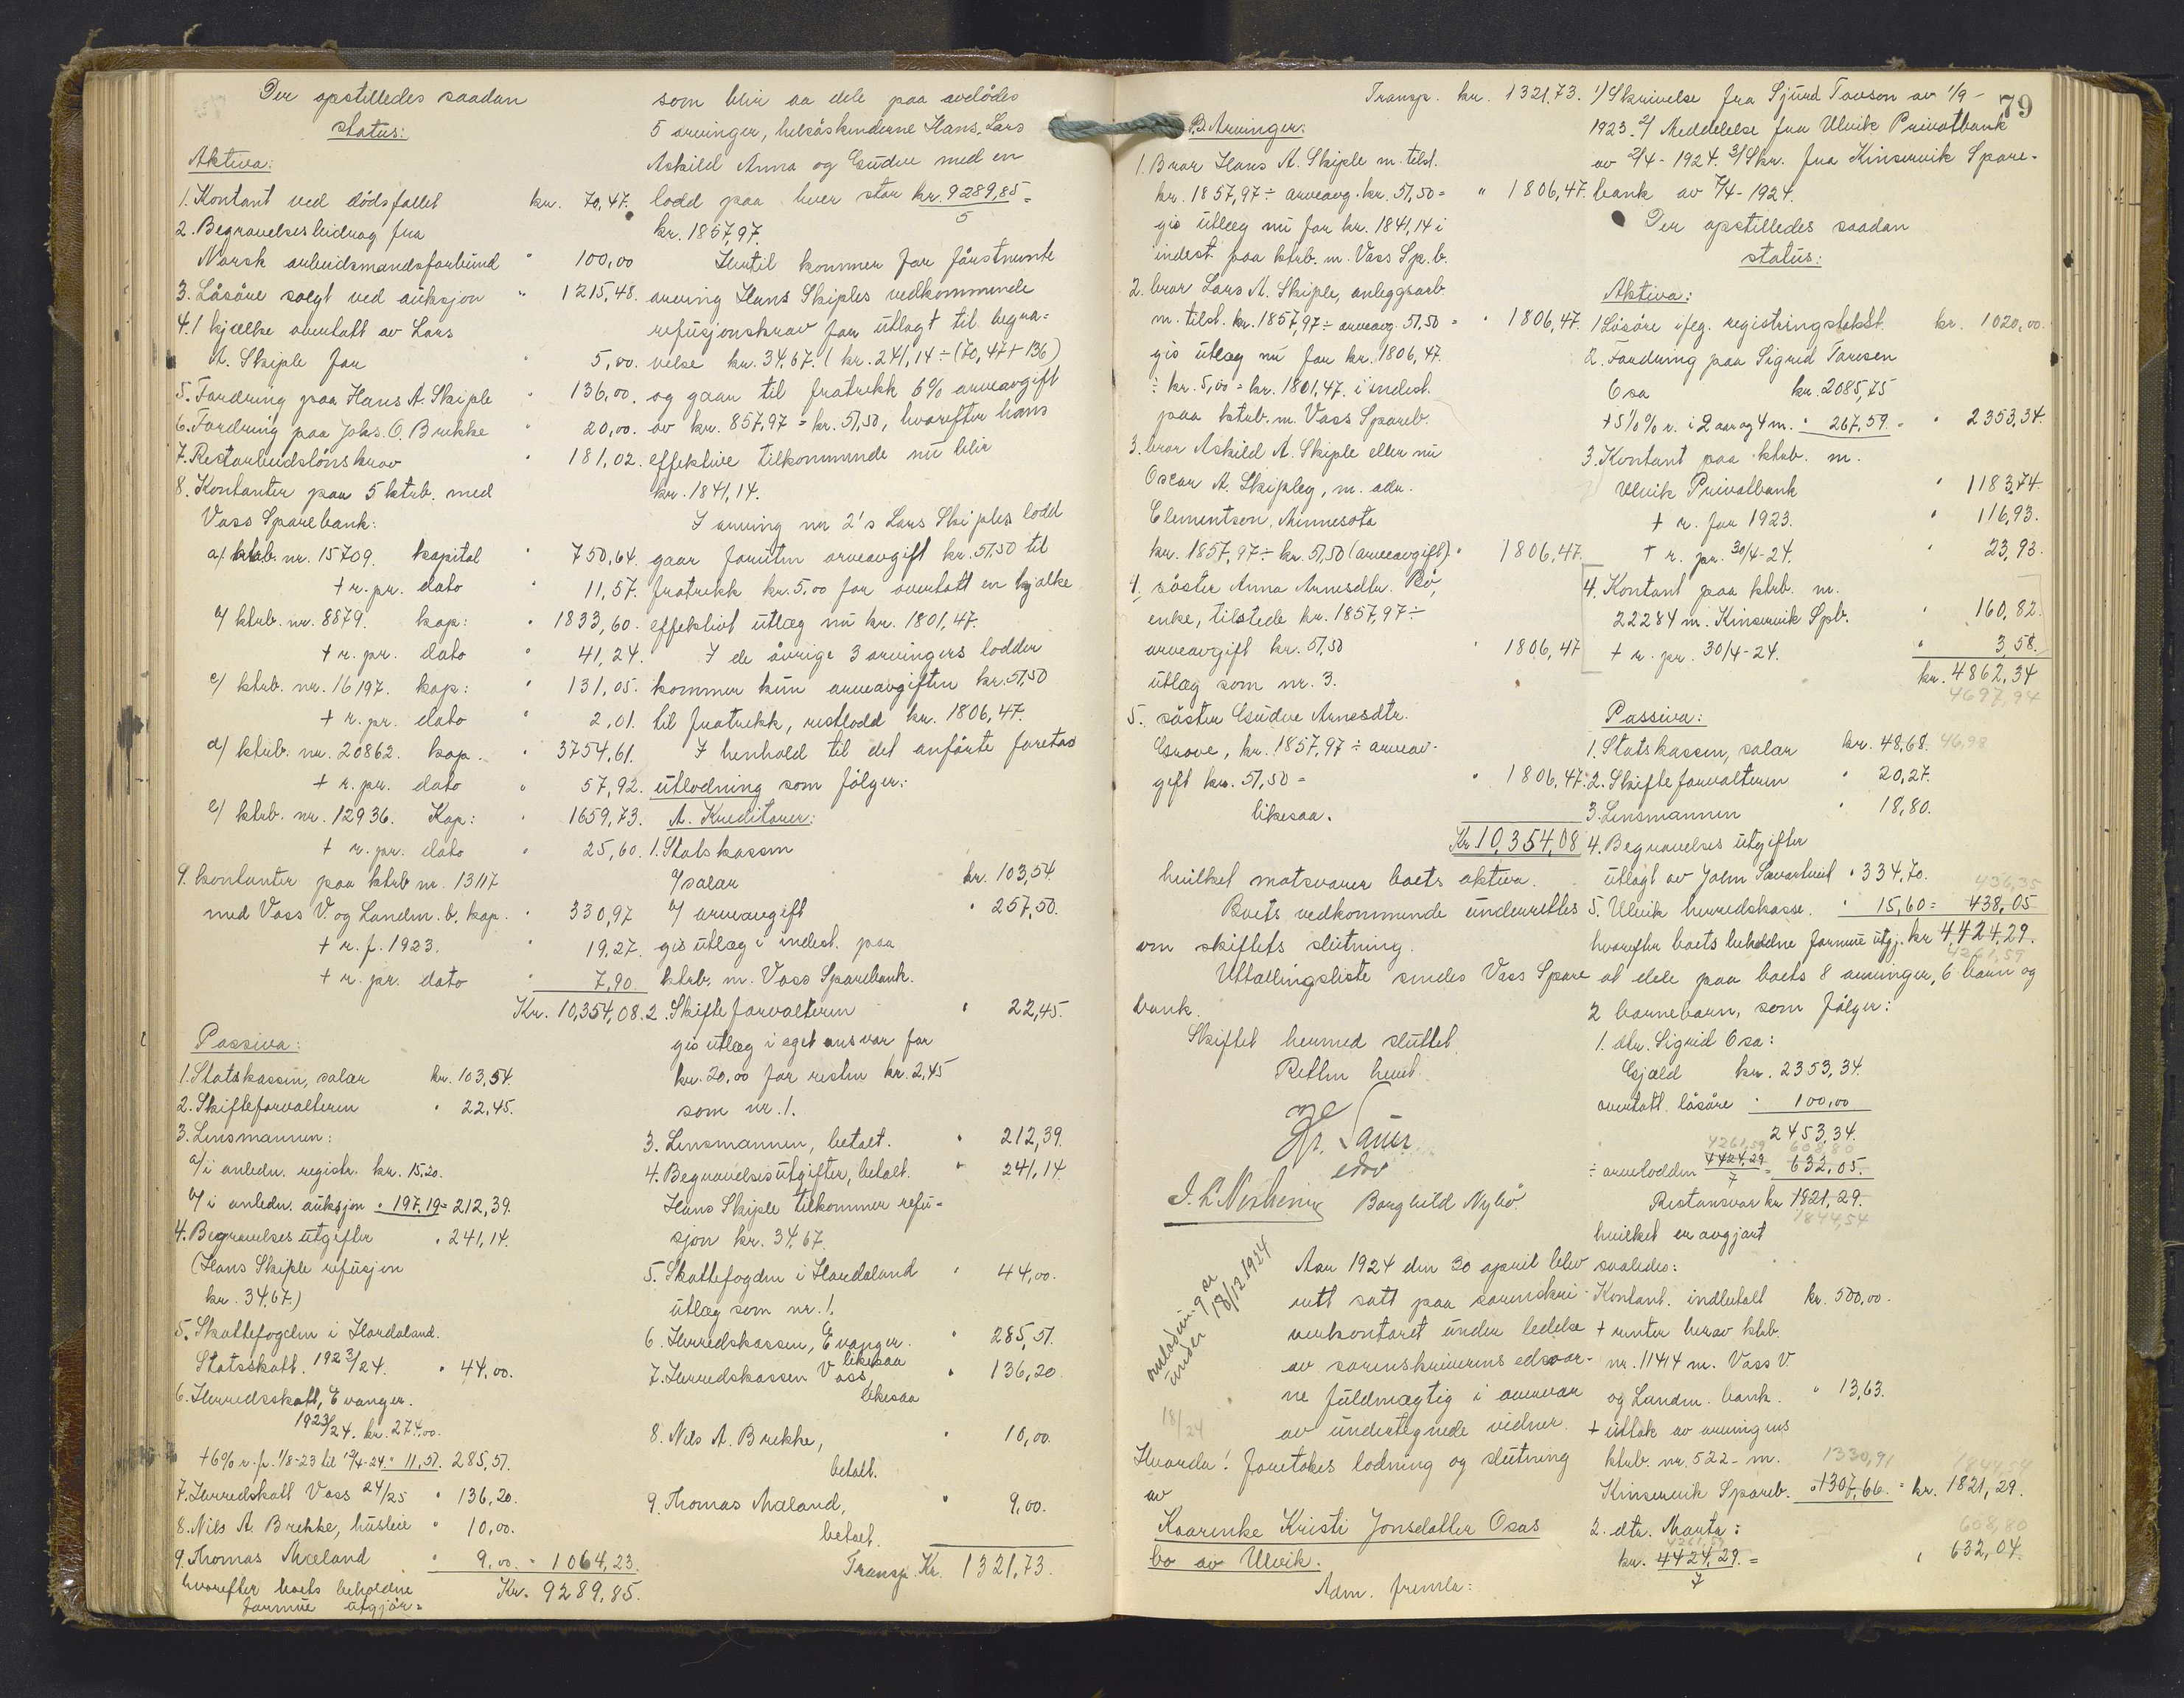 Der opstilledes saadan
status:
Aktiva:
1. Kontant ved dödsfallet kr. 70,47.
2. Begravelsesbidrag fra
Norsk arbeidsmandsforbund " 100,00
3. Lösöre solgt ved auksjon " 1215,48.
4. 1 kjælke overtatt av Lars
A. Skiple for " 5,00.
5. Fordring paa Hans A. Skiple " 136,00.
6. Fordring paa Johs. O. Brekke " 20,00.
7. Restarbeidslönskrav " 181,02.
8. Kontanter paa 5 ktrb. med
Voss Sparebank:
a/ ktrb. nr. 15709. kapital " 750,64
+ r. pr. dato " 11,57.
b/ ktrb. nr. 8879. kap: " 1833,60.
+ r. pr. dato " 41,24.
c/ ktrb. nr. 16197. kap: " 131,05.
+ r. pr. dato " 2,01.
d/ ktrb. nr. 20862. kap. " 3754,61.
+ r. pr. dato " 57,92.
e/ ktrb. nr. 12936. Kap: " 1659,73.
+ r. pr. dato " 25,60.
9. kontanter paa ktrb nr. 13117
med Voss V. og Landm. b. kap. " 330,97
+ r. f. 1923. " 19,27.
+ r. pr. dato " 7,90
Kr. 10,354,08.
Passiva:
1. Statskassen, salær kr. 103,54.
2. Skifteforvalteren " 22,45.
3. Lensmannen:
a/ i anledn. registr. kr. 15,20.
b/ i anledn. auksjon " 197,19 = 212,39.
4. Begravelsesutgifter " 241,14.
(Hans Skiple refusjon
kr. 34,67.)
5. Skattefogden i Hordaland.
Statsskatt. 1923/24. " 44,00.
6. Herredsskatt, Evanger.
1923/24. kr. 274,00.
+ 6% r. f. 1/8-23 til 12/4-24 " 11,51. 285,51.
7. Herredskatt Voss 24/25 " 136,20.
8. Nils A. Brekke, husleie " 10,00.
9. Thomas Mæland " 9,00. = 1064,23.
hvorefter boets beholdne Kr. 9289,85.
formue utgjör =
som blir aa dele paa avdödes
5 arvinger, helsöskenderne Hans, Lars
Askild Anna og Gudve med en
lodd paa hver stor kr. 9289,85 =
5
kr. 1857,97.
Hertil kommer for förstnevnte
arving Hans Skiples vedkommende
refusjonskrav for utlagt til begra=
velse kr. 34,67. (kr. 241,14 ÷ (70,47 + 136)
og gaar til fratrekk 6% arveavgift
av kr. 857,97 = kr. 51,50, hvorefter hans
effektive tilkommende nu blir
kr. 1841,14.
I arving nr 2's Lars Skiples lodd
gaar foruten arveavgift kr. 51,50 til
fratrekk kr. 5,00 for overtatt en kjælke
effektivt utlæg nu kr. 1801,47.
I de övrige 3 arvingers lodder
kommer kun arveavgiften kr. 51,50
til fratrekk, restlodd kr. 1806,47.
I henhold til det anförte foretas
utlodning som fölger:
A. Kreditorer:
1. Statskassen
a/ salær kr. 103,54
b/ arveavgift " 257,50.
gis utlæg i indest. paa
ktrb. m. Voss Sparebank.
2. Skifteforvalteren " 22,45.
gis utlæg i eget ansvar for
kr. 20,00 for resten kr. 2,45
som nr. 1.
3. Lensmannen, betalt. " 212,39.
4. Begravelsesutgifter, betalt. " 241,14
Hans Skiple tilkommer refu=
sjon kr. 34,67.
5. Skattefogden i Hordaland " 44,00.
utlæg som nr. 1.
6. Herredskassen, Evanger. " 285,51.
likesaa
7. Herredskassen Voss " 136,20.
likesaa
8. Nils A. Brekke, " 10,00.
betalt.
9. Thomas Mæland, " 9,00.
betalt.
Transp. Kr. 1321,73.
79
Transp. kr. 1321,73.
B. Arvinger:
1. Bror Hans A. Skiple m. tilst.
kr. 1857,97 ÷ arveavg. kr. 51,50 = " 1806,47.
gis utlæg nu for kr. 1841,14 i
indest. paa ktrb. m. Voss Sp.b.
2. bror Lars A. Skiple, anleggsarb
m. tilst. kr. 1857,97 ÷ arveavg. 51,50 = " 1806,47.
gis utlæg nu for kr. 1806,47.
÷ kr. 5,00 = kr. 1801,47. i indest.
paa ktrb. m. Voss Spareb.
3. bror Askild A. Skiple eller nu
Oscar A. Skipley, m. adr.
Clementson, Minnesota
kr. 1857,97 ÷ kr. 51,50 (arveavgift) " 1806,47.
4. söster Anna Arnesdtr. Bö,
enke, tilstede kr. 1857,97 ÷
arveavgift kr. 51,50 " 1806,47
utlæg som nr. 3.
5. söster Gudve Arnesdtr.
Grove, kr. 1857,97 ÷ arveav-
gift kr. 51,50 = " 1806,47.
likesaa.
Kr. 10,354,08
hvilket motsvarer boets aktiva.
Boets vedkommende underrettes
om skiftets slutning.
Uttællingsliste sendes Voss Spare
bank.
Skiftet hermed sluttet.
Retten hevet.
Hr. Sauer
edsv
Borghild Nybö
omlodning se
under 18/12 1924
18/24
Aar 1924 den 30 april blev
rett satt paa sorenskri-
verkontoret under ledelse
av sorenskriverens edsvor-
ne fuldmægtig i overvær
av undertegnede vidner.
Hvorda! foretokes lodning og slutning
av
Kaarenke Kristi Jonsdatter Osas
bo av Ulvik.
Adm. fremla:
1) Skrivelse fra Sjurd Tovson av 1/9-
1923. 2/ Meddelelse fra Ulvik Privatbank
av 2/4 - 1924. 3/ Skr. fra Kinservik Spare-
bank av 7/4 - 1924.
Der opstilledes saadan
status:
Aktiva:
1 Lösöre iflg. registringstakst. kr. 1020,00.
2. Fordring paa Sigrid
Osa kr. 2085,75
+ 5 1/2 % r. i 2 aar og 4 m. " 267,59. = " 2353,34.
3. Kontant paa ktrb. m.
Ulvik Privatbank " 1183,74.
+ r. for 1923. " 116,93.
+ r. pr. 30/4-24. " 23,93.
4. Kontant paa ktrb. nr.
22284 m. Kinservik Spb. " 160,82.
+ r. pr. 30/4-24. " 3,58.
kr. 4862,34
4697,94
Passiva:
1. Statskassen, salær kr. 48,68. 46,98
2. Skifteforvalteren " 20,27.
3. Lensmannen " 18,80.
4. Begravelses utgifter
utlagt av " 334,70.
436,35
5. Ulvik herredskasse. " 15,60 = 438,05
hvorefter boets beholdne formue utgj. kr 4424,29.
4261,59
at dele paa boets 8 arvinger, 6 barn og
2 barnebarn, som fölger:
1. dtr. Sigrid Osa:
Gjæld kr. 2353,34.
overtatt lösöre " 100,00
2453,34.
4261,59 608,80
÷ arvelodden 4424,29 = 632,05.
7
Restansvar kr 1821,29.
1844,54
hvilket er avgjort
saaledes:
Kontant. indbetalt kr. 500,00.
+ renter herav ktrb.
nr. 11414 m. Voss V.
og Landm. bank. " 13,63.
+ uttak av arvingens
ktrb. nr. 522 - m. 1330,91
1844,54
Kinservik Spareb. " 1307,66. = kr. 1821,29.
2. dtr. Marta: 608,80
4261,59
kr. 4424,29. = " 632,04.
7